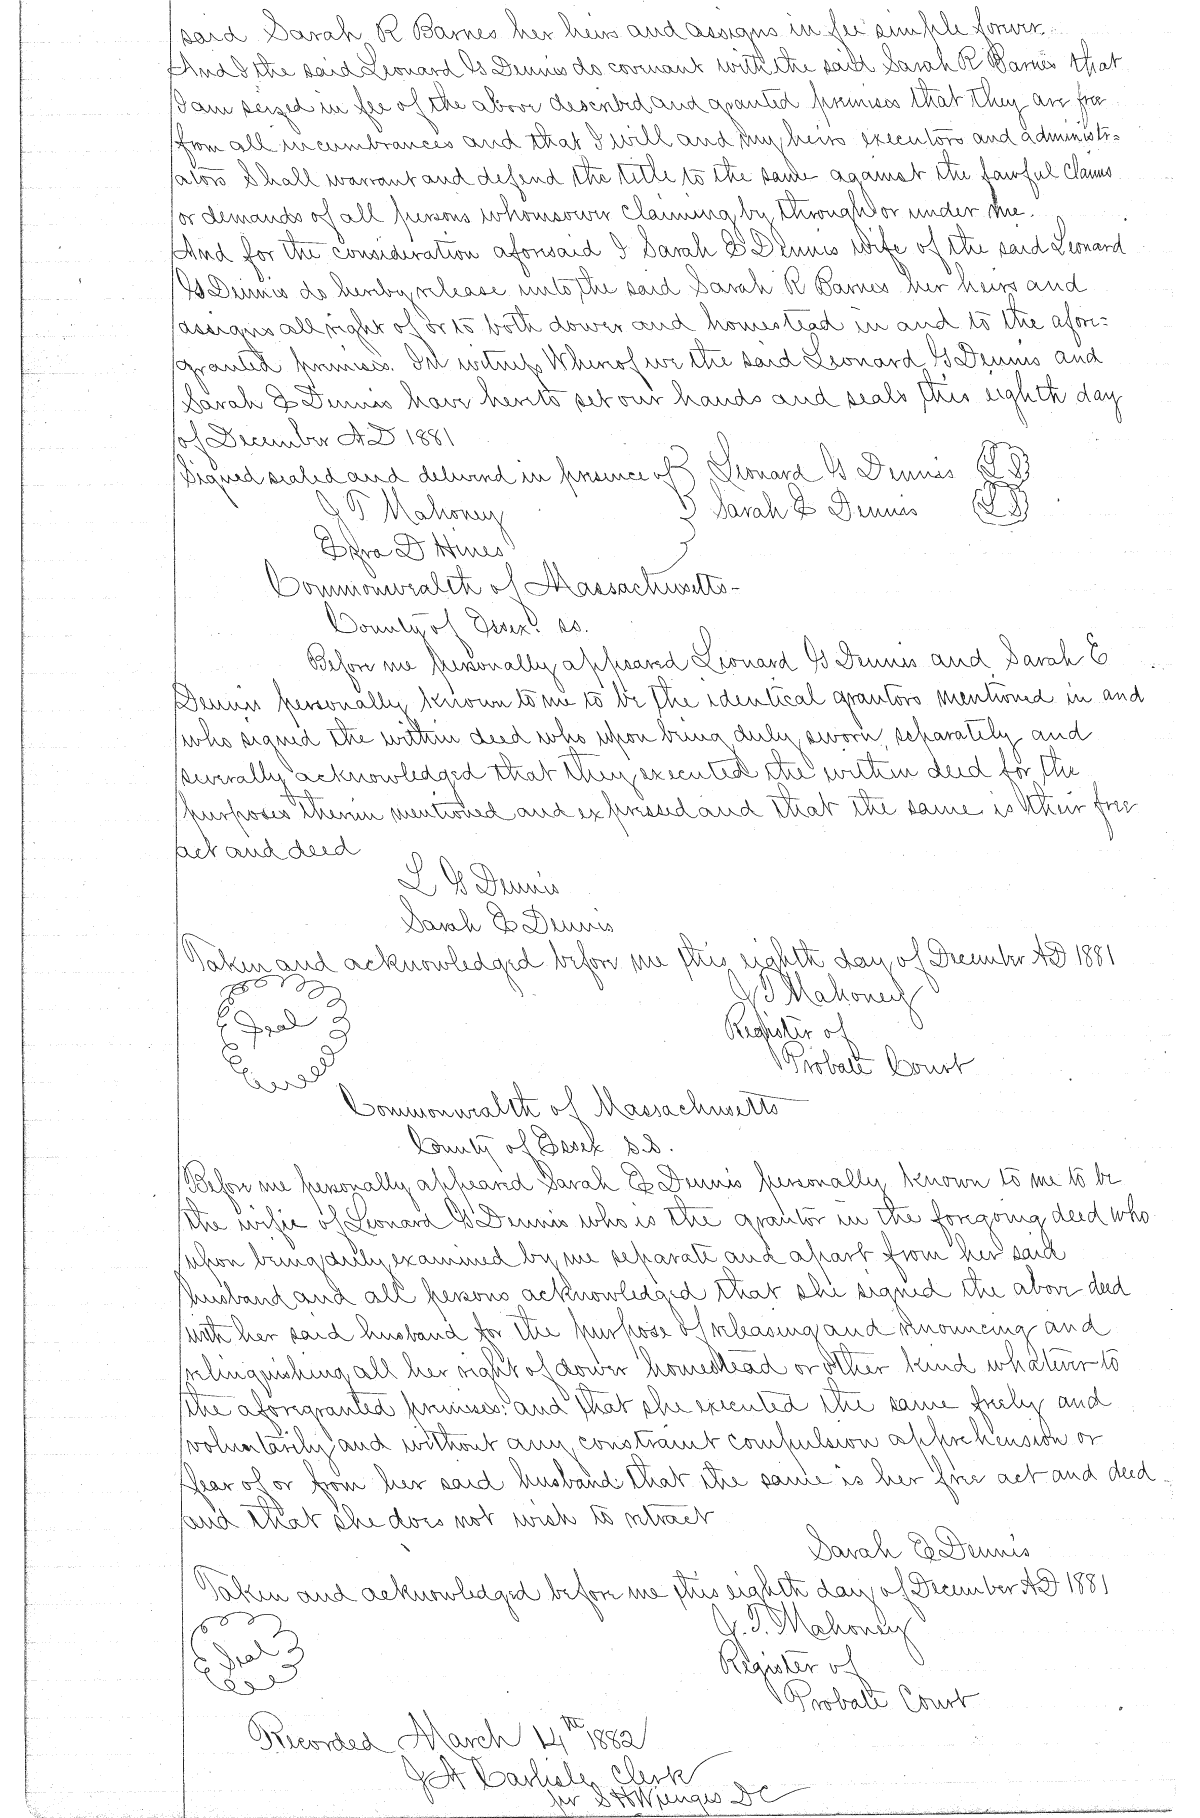 said Sarah R Barnes her heirs and assigns in fee simple forever.
And I the said Leonard G Dennis do covenant with the said Sarah R Barnes that
I am seized in fee of the above described and granted premises that they are free
from all incumbrances and that I will and my heirs executors and administr=
ators Shall warrant and defend the title to the same against the lawful claims
or demands of all persons whomsoever claiming by through or under me.
And for the consideration aforesaid I Sarah E Dennis wife of the said Leonard
G Dennis do hereby release unto the said Sarah R Barnes her heirs and
assigns all right of or to both dower and homestead in and to the afore=
granted premises. In witness Whereof we the said Leonard G Dennis and
Sarah E Dennis have hereto set our hands and seals this eighth day
of December AD 1881
Signed sealed and delivered in presence of Leonard G Dennis LS
J T Mahoney Sarah E Dennis LS
Ezra D Hines
Commonwealth of Massachusetts-
County of Essex. ss.
Before me personally appeared Leonard G Dennis and Sarah E
Dennis personally known to me to be the identical grantors mentioned in and
who signed the within deed who upon being duly sworn, separately and
severally acknowledged that they executed the within deed for the
purposes therein mentioned and expressed and that the same is their free
act and deed
L G Dennis
Sarah E Dennis
Taken and acknowledged before me this eighth day of December AD 1881
Seal
J T Mahoney
Register of
Probate Court
Commonwealth of Massachusetts
County of Essex S.S.
Before me personally appeared Sarah E Dennis personally known to me to be
the wife of Leonard G Dennis who is the grantor in the foregoing deed who
upon being duly examined by me separate and apart from her said
husband and all persons acknowledged that she signed the above deed
with her said husband for the purpose of releasing and renouncing and
relinquishing all her right of dower homestead or other kind whatever to
the aforegranted premises: and that she executed the same freely and
voluntarily and without any constraint compulsion apprehension or
fear of or from her said husband: that the same is her free act and deed
and that she does not wish to retract
Sarah E Dennis
Taken and acknowledged before me this eighth day of December AD 1881
Seal
J. T. Mahoney
Register of
Probate Court
Recorded March 14th 1882
J A Carlisle, Clerk
per S H Wienges DC